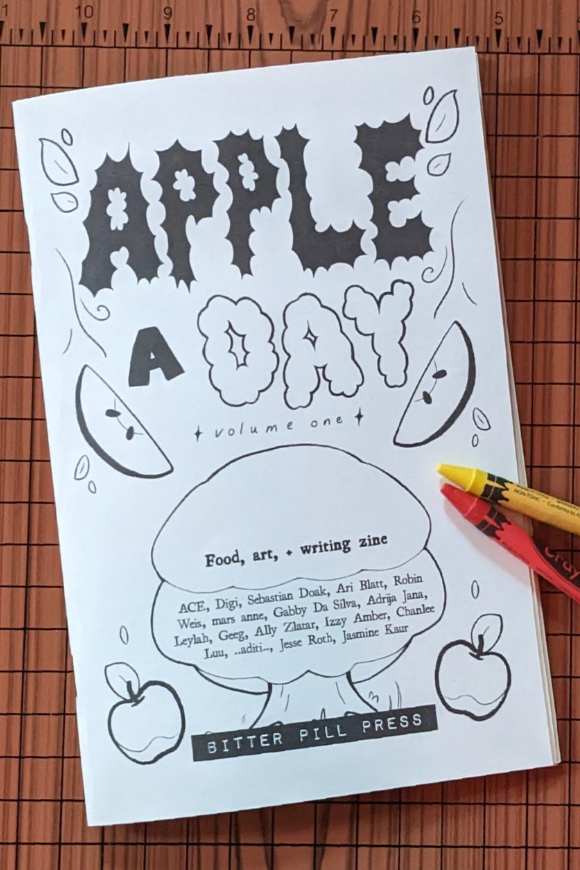 11 10 9 8 7 6 5
APPLE
A DAY
volume one
Food, art, + writing zine
ACE, Digi, Sebastian Doak, Ari Blatt, Robin
Weis, mars anne, Gabby Da Silva, Adrija Jana,
Leylah, Geeg, Ally Zlatar, Izzy Amber, Chanlee
Luu, ..aditi.., Jesse Roth, Jasmine Kaur
BITTER PILL PRESS